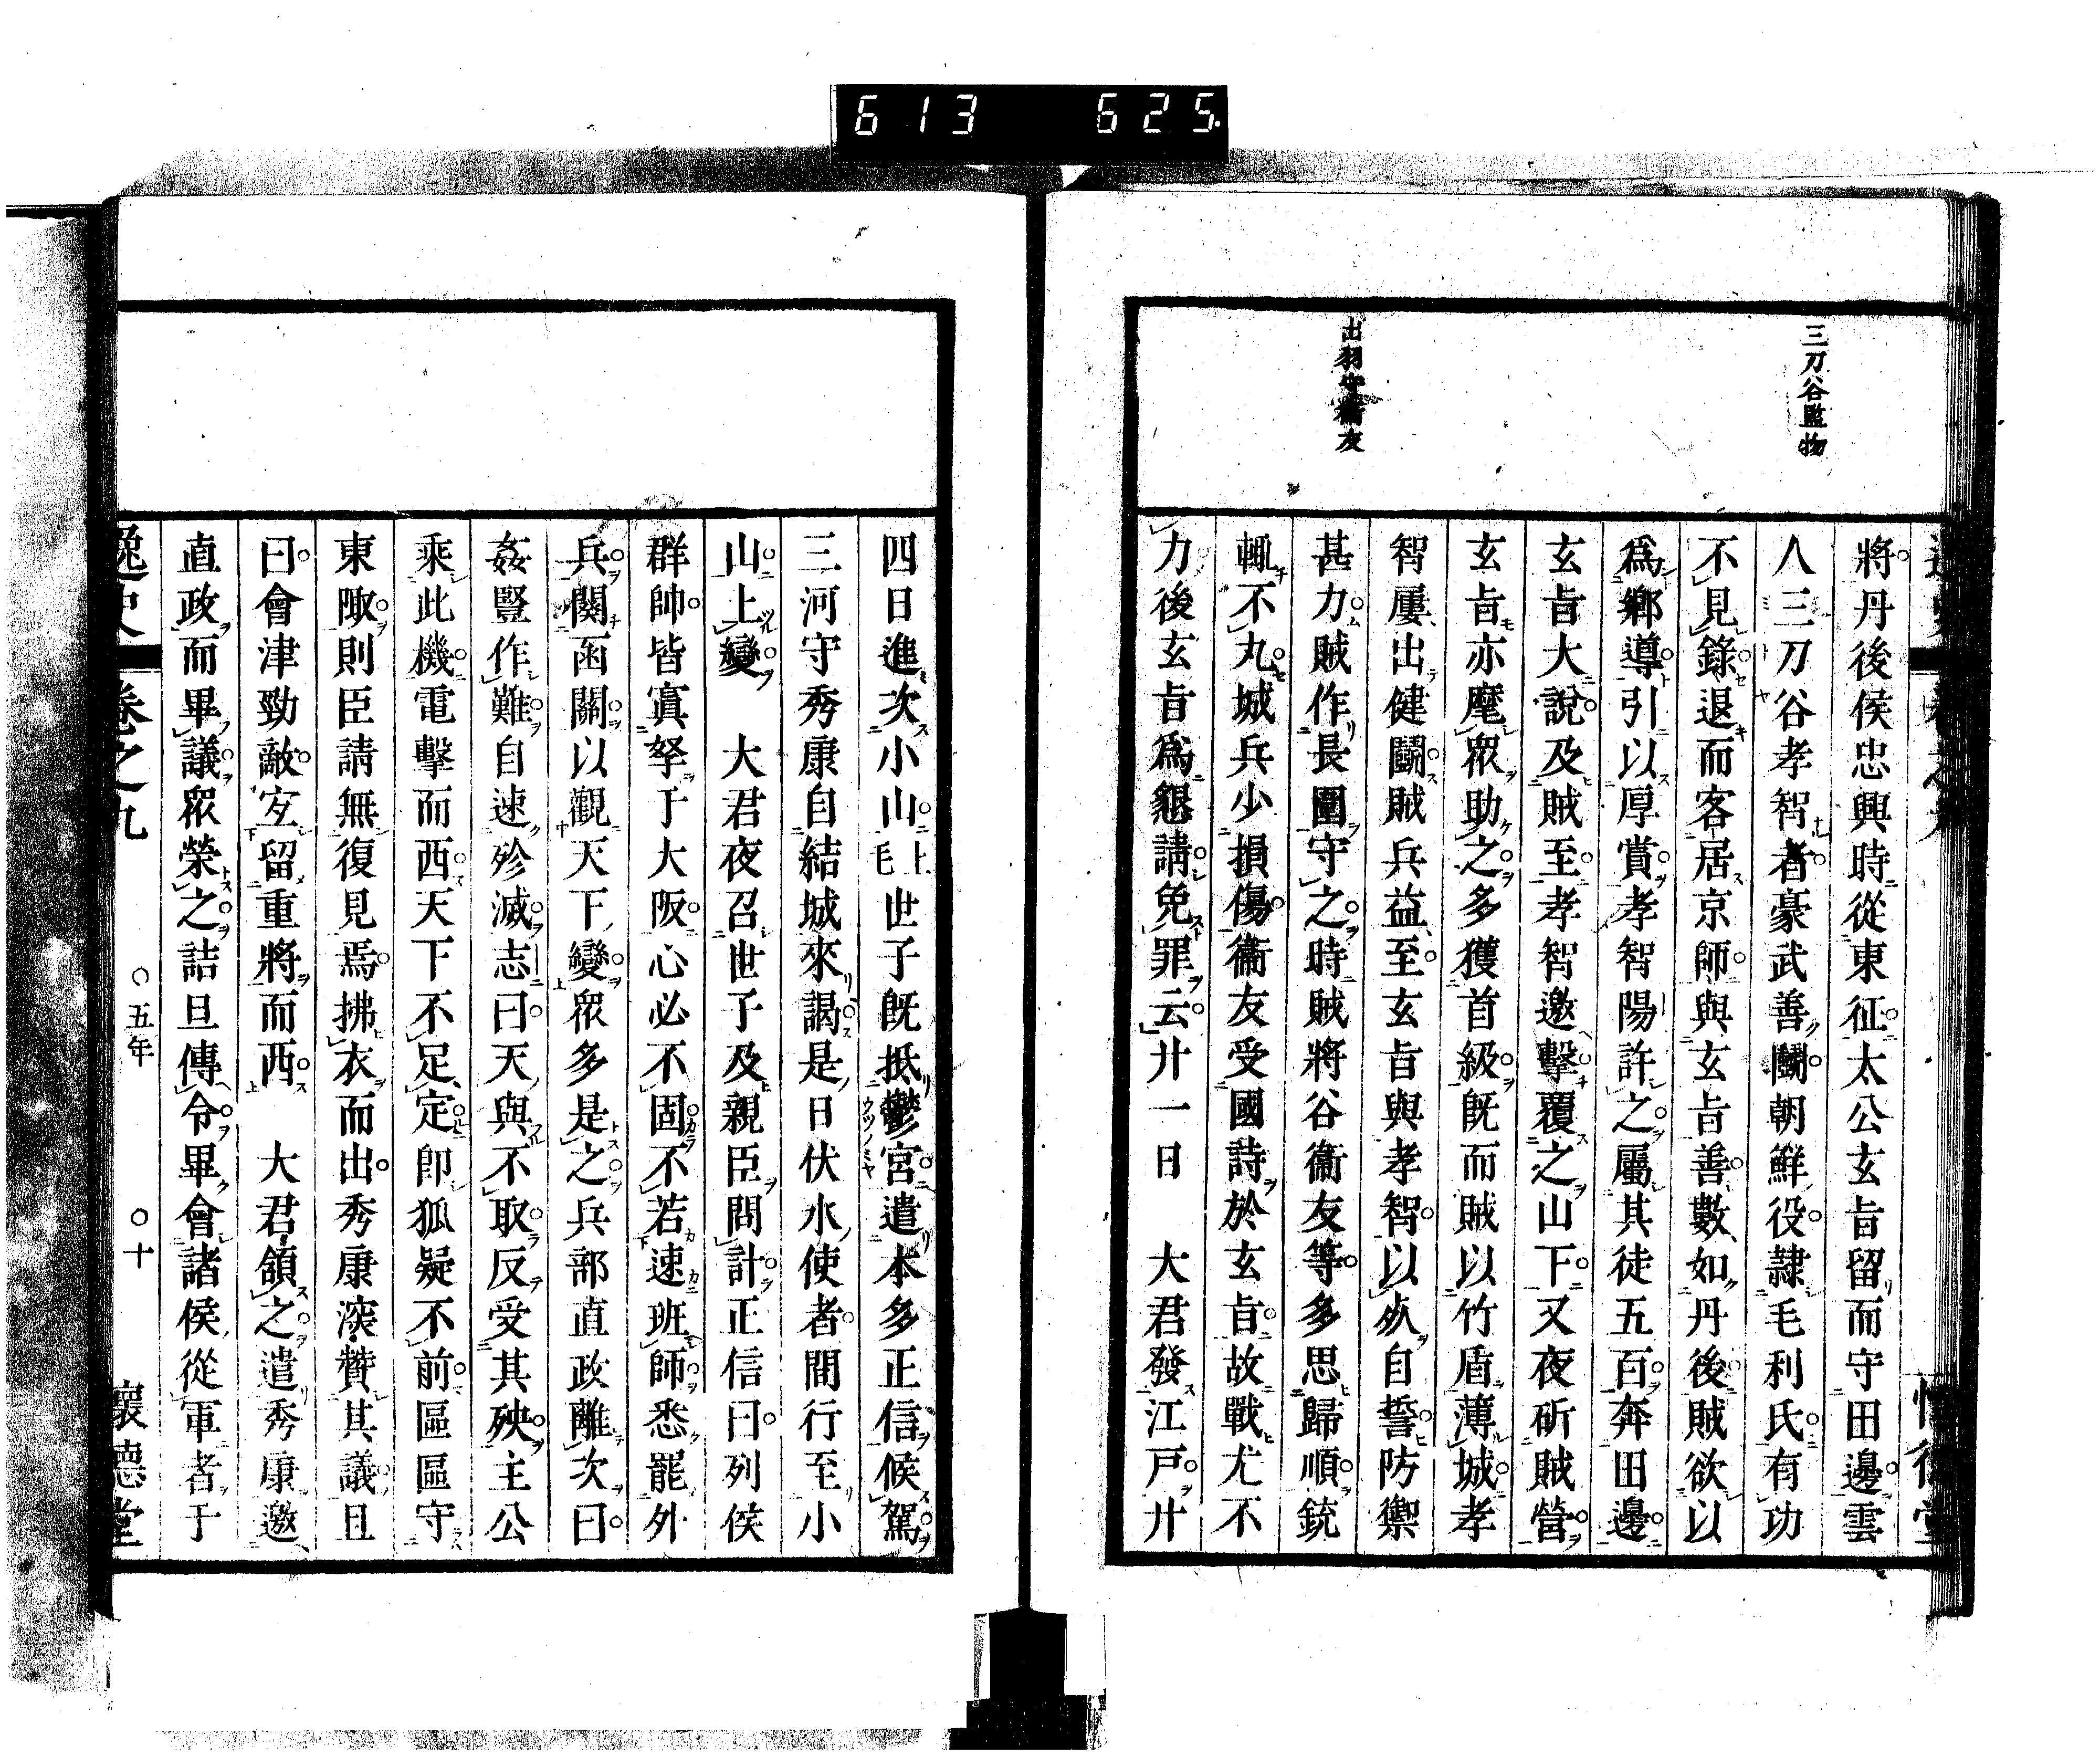 613 625
三刀谷監物
出羽守衞友
將丹後侯忠興時從東征太公玄旨留而守田邊雲
人三刀谷孝智者豪武善鬭朝鮮役隷毛利氏有功
不見錄退而客居京師與玄旨善數如丹後賊欲以
爲鄉導引以厚賞孝智陽許之屬其徒五百奔田邊
玄旨大說及賊至孝智邀擊覆之山下又夜斫賊營
玄旨亦麾衆助之多獲首級既而賊以竹盾薄城孝
智屢出健鬭賊兵益至玄旨與孝智以死自誓防禦
甚力賊作長圍守之時賊將谷衞友等多思歸順銃
輒不丸城兵少損傷衞友受國詩於玄旨故戰尤不
力後玄旨爲懇請免罪云廿一日 大君發江戸廿
四日進次小山上毛世子既抵鬱宮遣本多正信候駕
三河守秀康自結城來謁是日伏水使者間行至小
山上變 大君夜召世子及親臣問計正信曰列侯
群帥皆寘孥于大阪心必不固不若速班師悉罷外
兵闕函關以觀天下變衆多是之兵部直政離次曰
姦豎作難自速殄滅志曰天與不取反受其殃主公
乘此機電擊而西天下不足定卽狐疑不前區區守
東陬則臣請無復見焉拂衣而出秀康深贊其議且
曰會津勁敵宜留重將而西 大君頷之遣秀康邀
直政而畢議衆榮之詰旦傳令畢會諸侯從軍者于
逸史 卷之九 五年 十 懷德堂